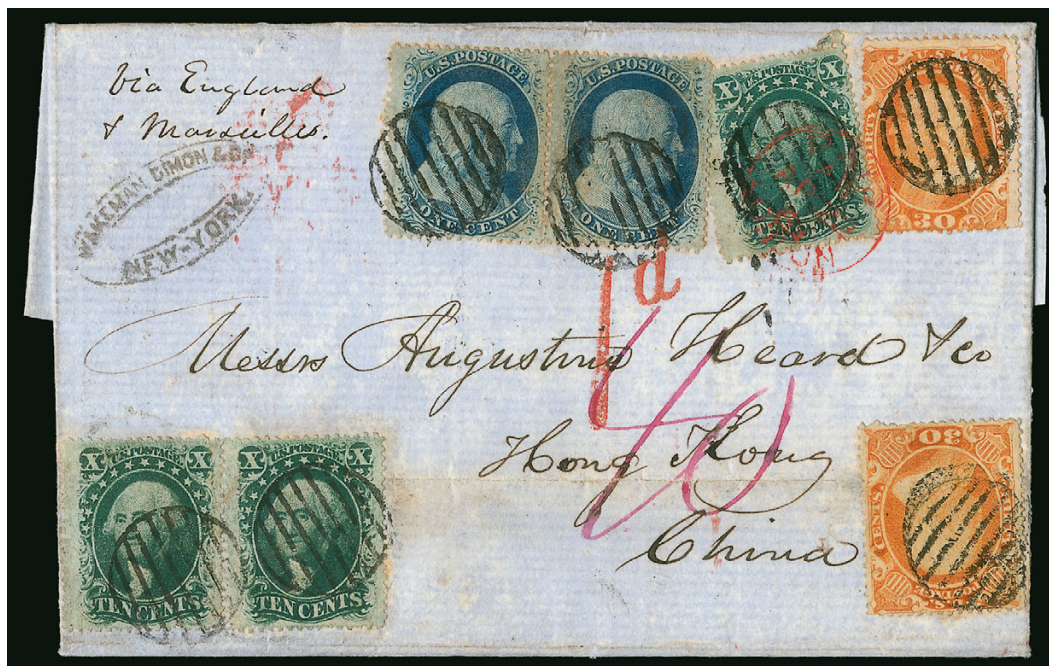 Via England
& Marseilles.
WAKEMAN DIMON & Co
NEW-YORK.
U.S. POSTAGE
ONE CENT
U.S. POSTAGE
ONE CENT
X U.S. POSTAGE X
TEN CENTS
U.S.
THIRTY
30
LON
1d
Messrs Augustine Heard & co
Hong Kong
China
X U.S. POSTAGE X
TEN CENTS
X U.S. POSTAGE X
TEN CENTS
30
CENTS
U.S. POSTAGE